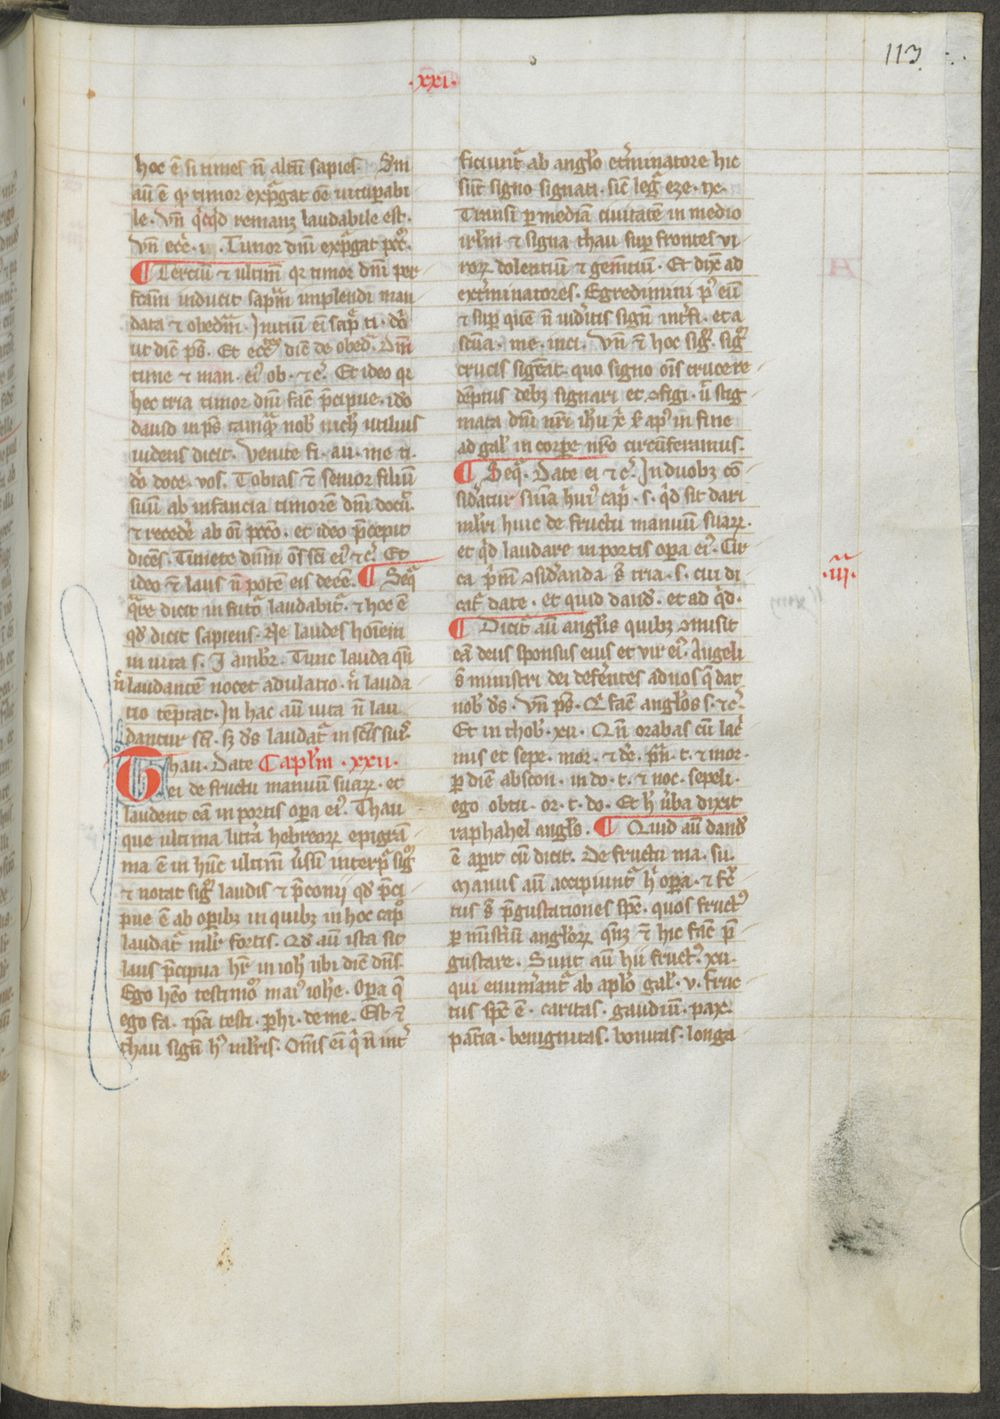 113
.xxi.
hoc ē si times nō altū sapies. Scđm
aūt ē qꝛ timor expꝰgat oē uitupabi
le. Vn̄ qͥcqͥd remanꝫ laudabile est.
Vn̄ eccͥ. i. Timor dn̄i expꝰgat pctͫ.
¶ Terciū ⁊ ultimū qꝛ timor dn̄i per
fectam inducit sapīam implendi man
data ⁊ obedīam. Initiū eī sapͥ ti. dō
ut diē ps̄. Et ecc̄s diē de obed. Dm̄
time ⁊ man. eiꝰ ob. ⁊ cͥ. Et ideo qꝛ
hec tria timor dn̄i facit p̄cipue. ido
dauid in ps̄ tamqͣ nob̄ nich̄ utilius
uidens dicit. Venite fi. au. me ti.
dō doce. vos. Tobias ⁊ senior filiū
suū ab infancia timorē dn̄i docūͥ.
⁊ recedͤ ab oī pctō. et ideo p̄cepit
dicēs. Timete dn̄m ōs sc̄i eiꝰ ⁊ cͥ. Et
ideo ē laus nō potē eis deeē. ¶ Seqͥ
qͣre dicit in futͦ laudabitͬ. ⁊ hoc ē
qđ dicit sapiens. Ne laudes hoīem
in uita s. I ambr̄. Tunc lauda qn̄
nͨ laudantē nocet adulatio. nͨ lauda
tio tēptat. In hac aū uita nō lau
dantur sc̄i. sꝫ ds̄ laudatͬ in scīs suis.
Thau. Date Capl̄m .xxii.
ei de fructu manuū suaꝝ. et
laudent eā in portis opa eiꝰ. Thau
que ultima litͣa hebreoꝝ epigrā
ma ē in hūc ultimū ūsū interpͣ sigͫ
⁊ notat sigͫ laudis ⁊ p̄conii qđ p̄ci
pue ē ab opibꝫ in quibꝫ in hoc capͦ
laudatͬ ml̄r fortis. Qđ aū ista sit
laus p̄cipua hr̄ in ioh̄ ubi diē dn̄s
Ego heō testimoͫ maiꝰ ioh̄e. Opa qͤ
ego fa. ip̄a testi. phi. de me. Est ⁊
thau signū hꝰ ml̄ris. Om̄s eī qͥ nō intͤ
ficiunͬ ab angl̄o extͤminatore hic
sūt signo signati. sic̄ legͬ eze. ix.
Transi p mediā ciuitatē in medio
irl̄m ⁊ signa thau sup frontes vi
roꝝ dolentiū ⁊ gementiū. Et dixͭ ad
extͤminatores. Egredimini pͭ eū
⁊ sup quē nō uidͤitis signū intͤfi. et a
scūa. me. inci. Vn̄ ⁊ hoc sigͫ. sigͫ
crucis signat. quo signo oīs cruce re
dēptus debꝫ signari et ɔfigi. ū stig
mata dn̄i nr̄i ih̄u xͥ ł apͦ in fine
ad gal̄ in corpe nr̄o circūferamus.
¶ Seqͥ. Date ei ⁊ cͥ. In duobꝫ cō
sidͤatur sūma huiꝰ capͥ. s. qͥd sit dari
ml̄ri huic de fructu manuū suaꝝ.
et qͥd laudare in portis opa eiꝰ. Cir
ca p̄mū ɔsidͤanda s̄ tria. s. cui di
catͬ date. et quid dandͫ. et ad qͥd.
.iii.
¶ Dicitͬ aū angl̄is quibꝫ ɔmisit
eā deus sponsus eius et vir eiꝰ. Angeli
s̄ ministri dei defer̄entes ad nos qͤ dat
nob̄ ds̄. Vn̄ ps̄. Qͥ facͭ angl̄os s. ⁊ cͥ.
Et in thob̄. xii. Qn̄ orabas cū lacͥ
mis et sepe. mor. ⁊ de. pn̄. t. ⁊ mor.
p diē abscon. in do. t. ⁊ noc. sepeli.
ego obtu. or. t. do. Et h̄ ūba dixit
raphahel angl̄s. ¶ Quid aū dandͫ
ē aperit cū dicit. De fructu ma. su.
Manus aū accipiuntͬ h̄ opa. ⁊ fͨ
tus s̄ p̄gustationes spē. quos fructꝰ
p mīsteriū angl̄oꝝ qm̄ꝫ ⁊ hic facͭ p̄
gustare. Sunt aū hii fructꝰ. xii.
qui enum̄antͬ ab apl̄o gal̄. v. fruc
tus spē ē. caritas. gaudiū. pax.
patīa. benignitas. bonitas. longa